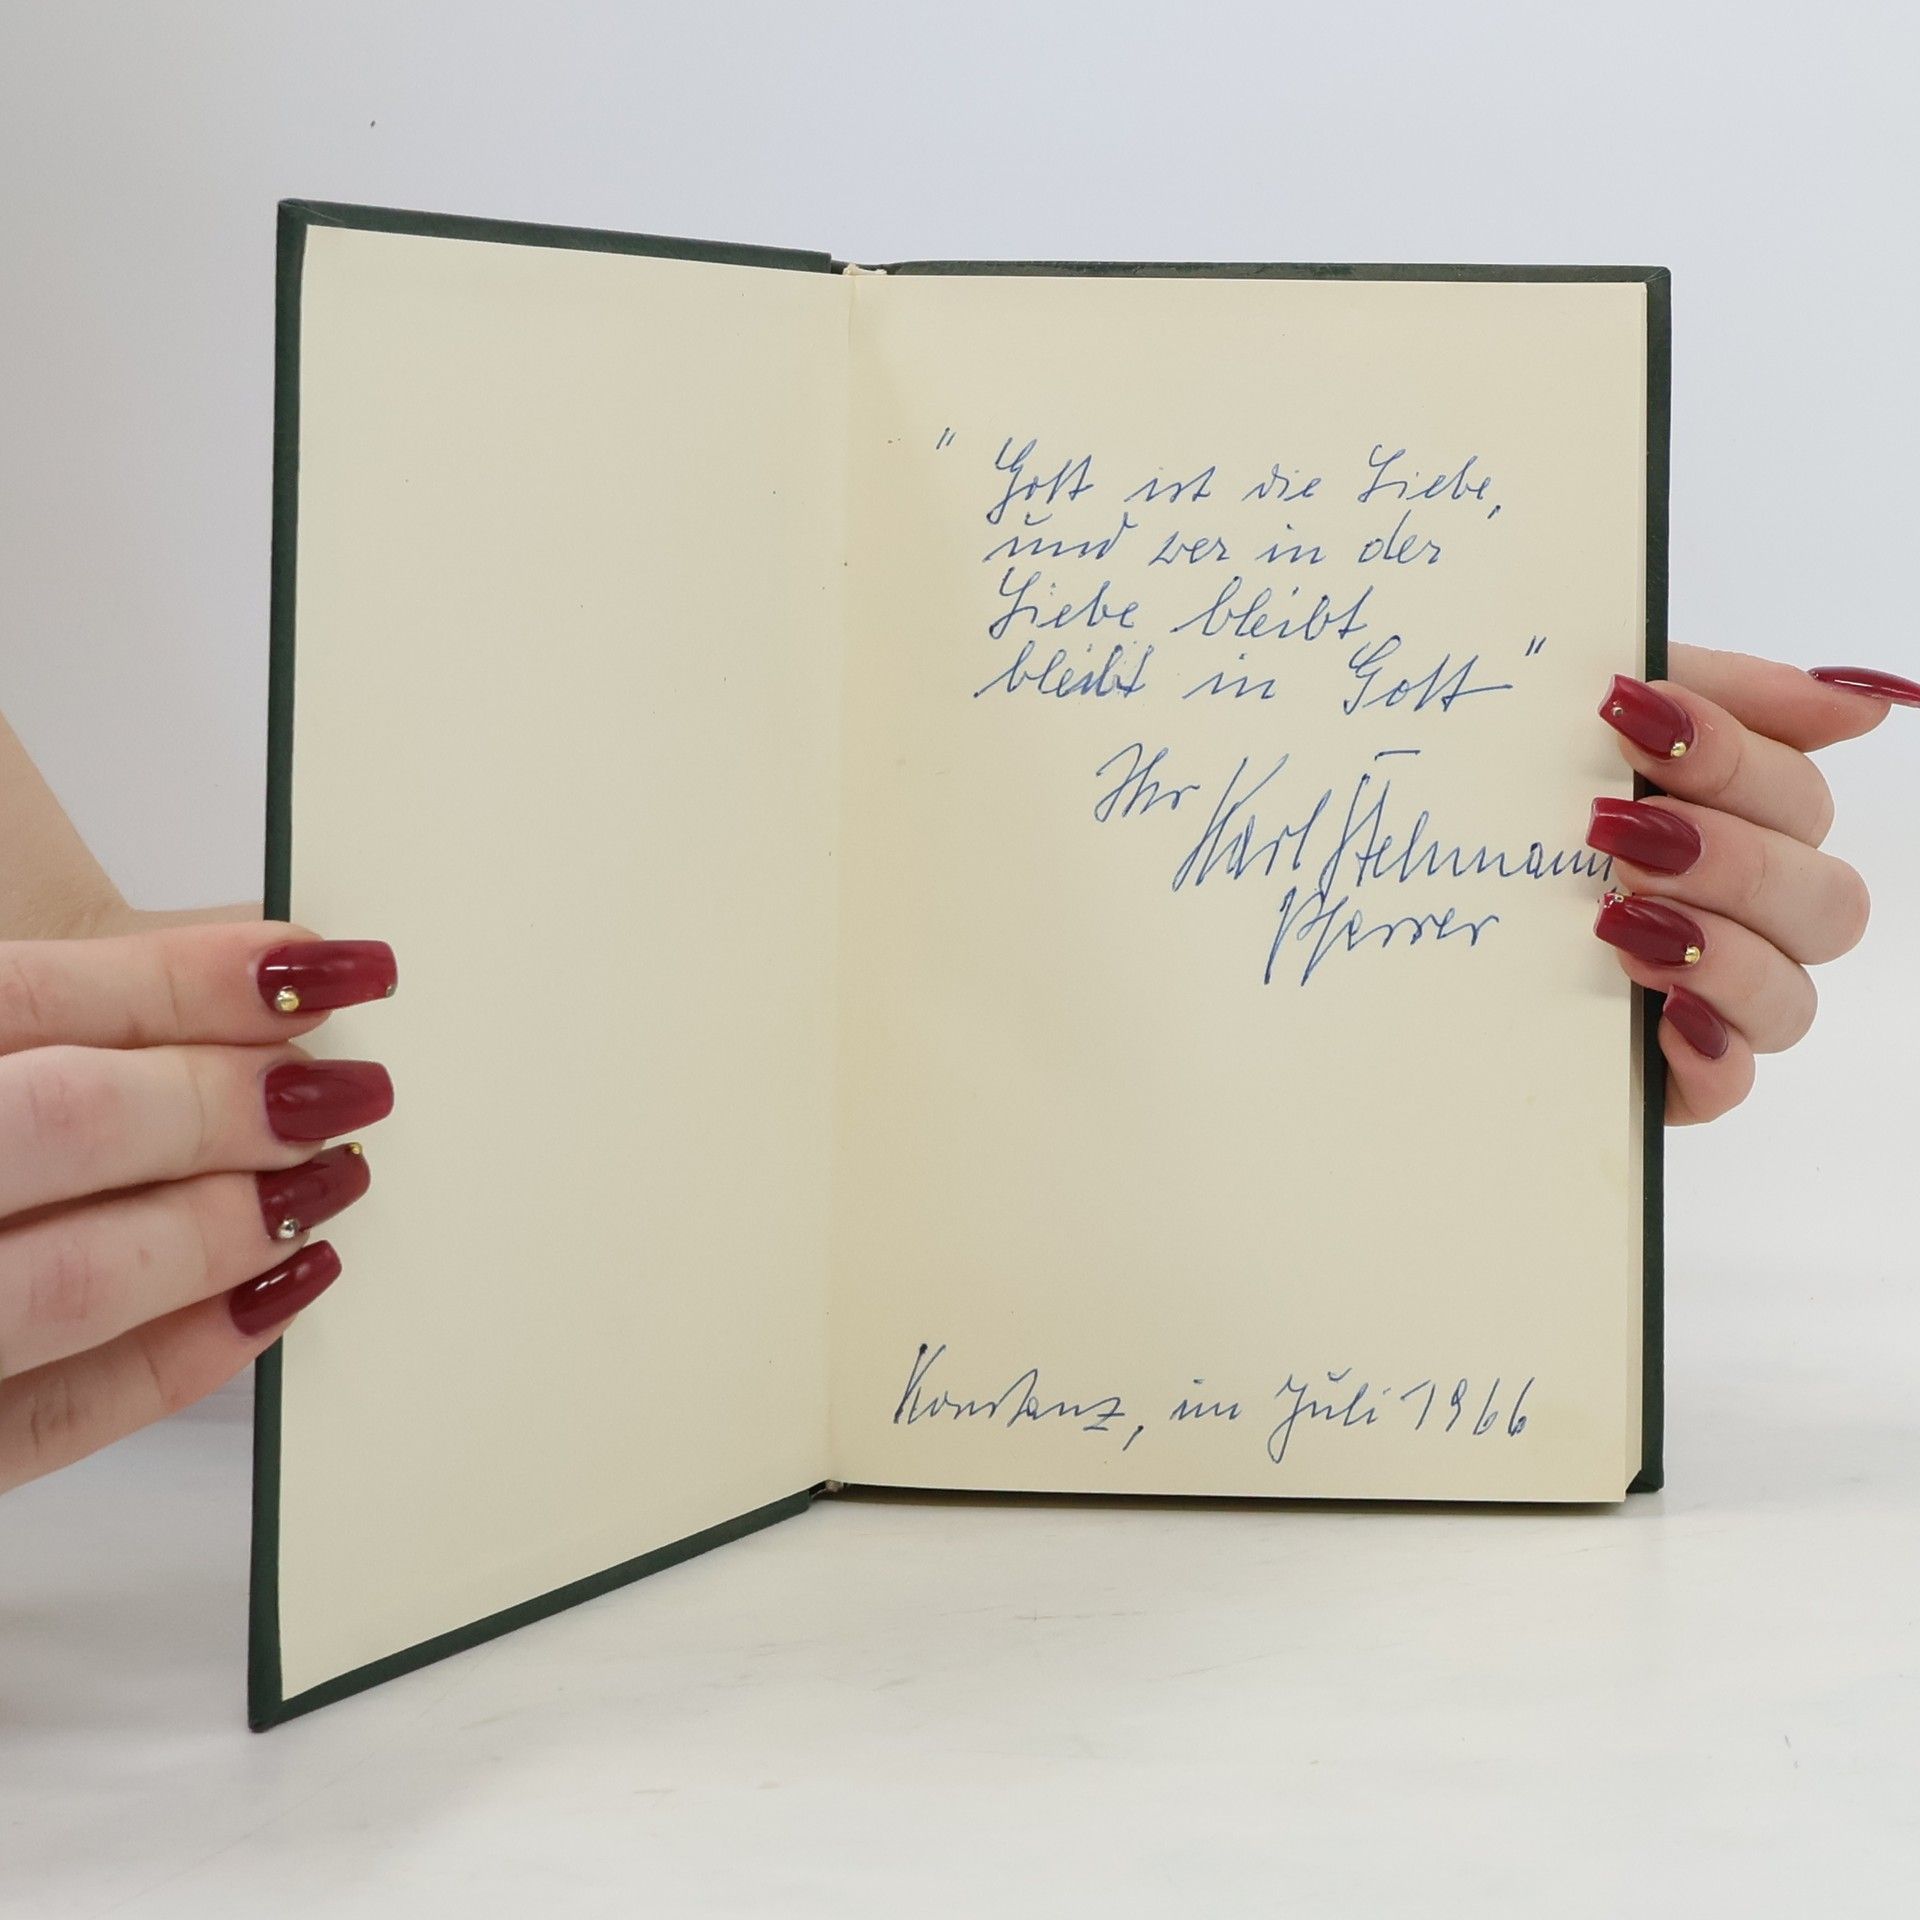 " Gott ist die Liebe,
und wer in der
Liebe bleibt
bleibt in Gott "
Ihr Karl
Pfarrer
Konstanz, im Juli 1966